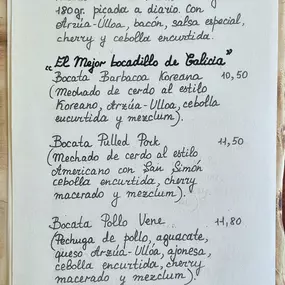 180gr. picada a diario. Con
Arzúa-Ulloa, bacón, salsa especial,
cherry y cebolla encurtida.
"El Mejor bocadillo de Galicia"
Bocata Barbacoa Koreana 10,50
(Mechado de cerdo al estilo
Koreano, Arzúa-Ulloa, cebolla
encurtida y mezclum).
Bocata Pulled Pork 11,50
(Mechado de cerdo al estilo
Americano con San Simón
cebolla encurtida, cherry
macerado y mezclum).
Bocata Pollo Vene... 11,80
(Pechuga de pollo, aguacate,
queso Arzúa-Ulloa, ajonesa,
cebolla encurtida, cherry
macerado y mezclum).